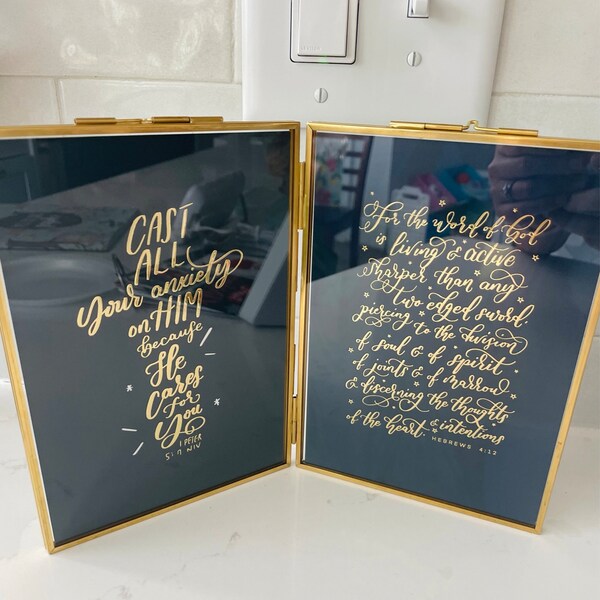 CAST
ALL
Your anxiety
on HIM
because
He
Cares
for
You
1 PETER
5:7 NIV
For the word of God
is living & active
sharper than any
two-edged sword,
piercing to the division
of soul & of spirit
of joints & of marrow
& discerning the thoughts
& intentions
of the heart.
HEBREWS 4:12